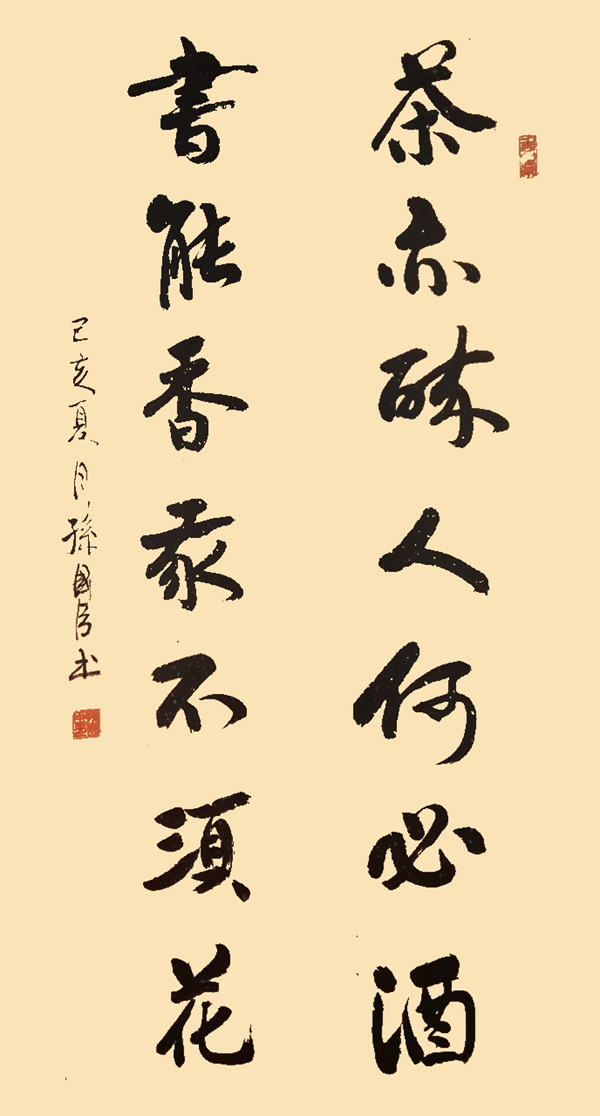 茶亦醉人何必酒
書能香我不須花
己亥夏月孫國书